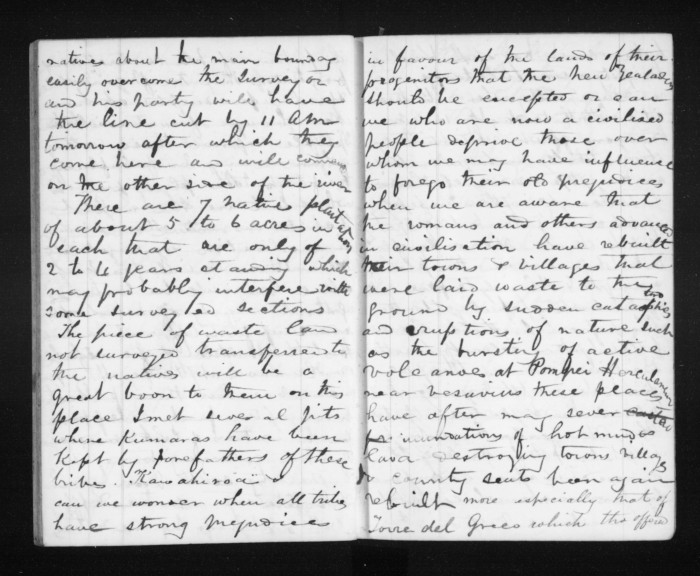 natives about the main boundary
easily overcome the surveyor
and his party will have
the line cut by 11 Am
tomorrow after which they
come here and will commence
on the other side of the river
There are 7 native plantations
of about 5 to 6 acres in
each that are only of
2 to 4 years standing which
may probably interfere with
some surveyed sections
The piece of waste land
not surveyed transferred to
the natives will be a
great boon to them on this
place I met several pits
where Kumaras have been
kept by forefathers of these
tribes.
can we wonder when all tribes
have strong prejudices
in favour of the lands of their
progenitors that the New Zealanders
should be excepted or can
we who are now a civilised
people deprive those over
whom we may have influence
to forego their old prejudices
when we are aware that
the romans and others advanced
in civilisation have rebuilt
their towns & villages that
were laid waste to the
ground by sudden catastrophies
and eruptions of nature such
as the bursting of active
volcanoes at Pompei Herculaneum
near vesuvius these places
have after may sever
inundations of hot mud &
lava destroying towns villages
& country seats been again
rebuilt more especially that of
Torre del Greco which